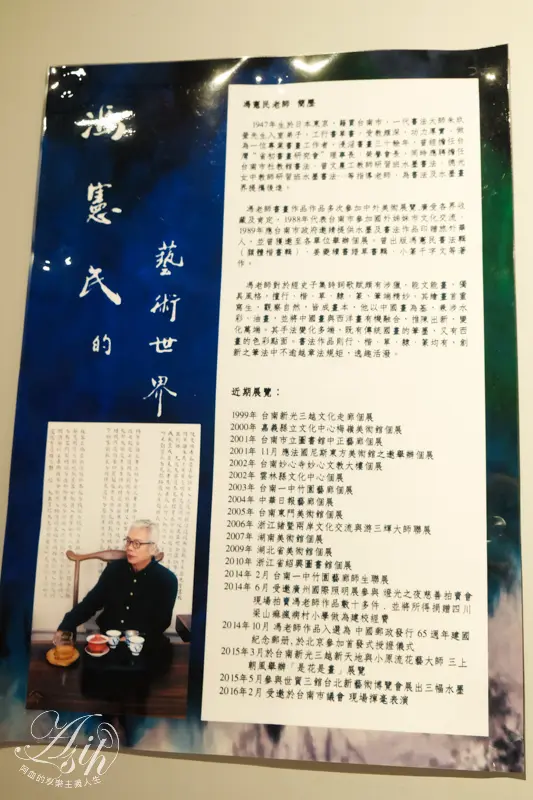 馮憲民的
藝術世界
馮憲民老師 簡歷
1947年生於日本東京，籍貫台南市，一代書法大師朱玖
瑩先生入室弟子，工行書草書，受教雅深，功力渾實，做
為一位專業書畫工作者，浸淫書畫三十餘年，曾經擔任台
灣"省初書畫研究會"理事長、榮譽會長，同時應聘擔任
台南市社教館書法、曾文農工教師研習班水墨書法、德光
女中教師研習班水墨書法...等指導老師，為書法及水墨畫
界提攜後進。
馮老師書畫作品作品多次參加中外美術展覽廣受各界收
藏及肯定，1988年代表台南市參加國外姊妹市文化交流，
1989年應台南市政府邀請提供水墨及書法作品印禮然外華
人，並曾獲邀至各單位舉辦個展。曾出版馮憲民書法輯
（顏體楷書輯）、姜夔續書譜草書輯、小篆千字文等著
作。
馮老師對於經史子集詩詞歌賦頗有涉獵，能文能畫，獨
具風格，擅行、楷、草、隸、篆，筆端精妙。其繪畫首重
寫生，觀察自然，皆成畫本，他以中國畫為基，兼涉水
彩、油畫，並將中國畫與西洋畫有機融合，推陳出新，變
化萬端。其手法變化多端，既有傳統國畫的筆墨，又有西
畫的色彩點面。書法作品則行、楷、草、隸、篆均有，創
新之筆法中不逾越章法規矩，逸趣活潑。
近期展覽：
1999年 台南新光三越文化走廊個展
2000年 嘉義縣立文化中心梅嶺美術館個展
2001年 台南市立圖書館中正藝廊個展
2001年 11月 應法國尼斯東方美術館之邀舉辦個展
2002年 台南妙心寺妙心文教大樓個展
2002年 雲林縣文化中心個展
2003年 台南一中竹園藝廊個展
2004年 中華日報藝廊個展
2005年 台南東門美術館個展
2006年 浙江諸暨兩岸文化交流與游三輝大師聯展
2007年 湖南美術館個展
2009年 湖北省美術館個展
2010年 浙江省紹興圖書館個展
2014年 2月 台南一中竹園藝廊師生聯展
2014年 6月 受邀廣州國際照明展參與 燈光之夜慈善拍賣會
現場拍賣馮老師作品數十多件，並將所得捐贈四川
梁山痲瘋病村小學做為建校經費
2014年10月 馮老師作品入選為 中國郵政發行 65 週年建國
紀念郵冊，於北京參加首發式授證儀式
2015年3月於台南新光三越新天地與小原流花藝大師 三上
朝風舉辦「是花是畫」展覽
2015年5月參與世貿三館台北新藝術博覽會展出三幅水墨
2016年2月 受邀於台南市議會 現場揮毫表演
Asih
阿血的享樂主義人生